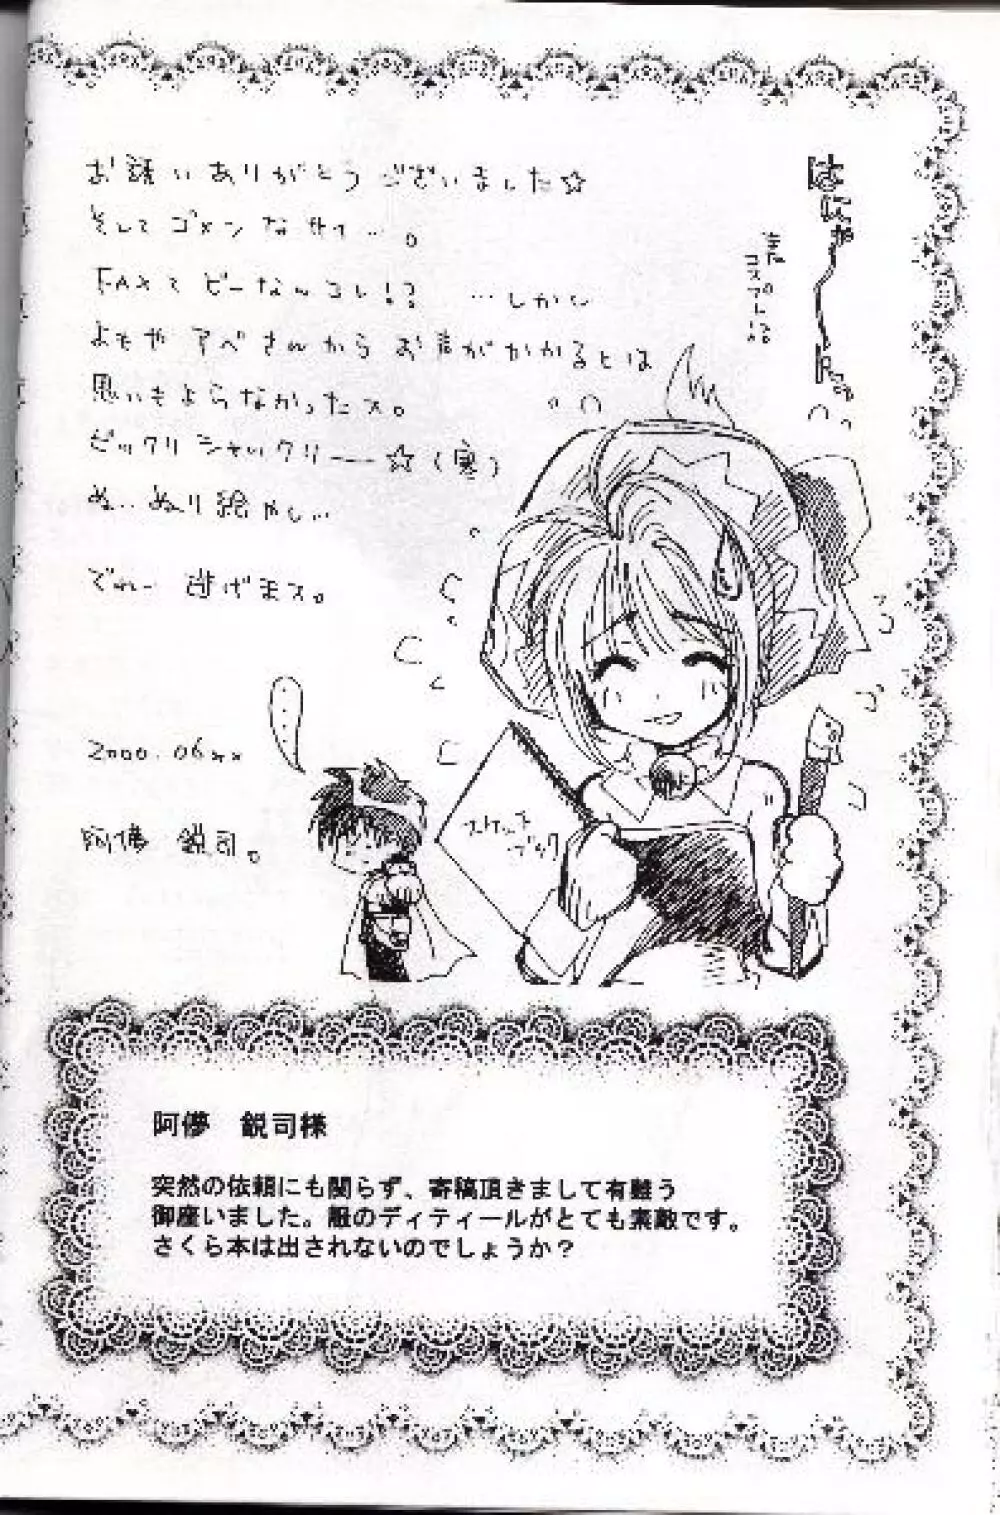 お誘いありがとうございました☆
そしてゴメンなサイ…。
FAXてどーなんコレ!? …しかし
よもやアベさんからお声がかかるとは
思いもよらなかったス。
ビックリシャックリー☆(寒)
ぬ…ぬり絵やし…
でわー 逃げまス。
2000.06
阿儚 鋭司。
はにゃーん
スケッチ
ブック
阿儚 鋭司様
突然の依頼にも関らず、寄稿頂きまして有難う
御座いました。服のディティールがとても素敵です。
さくら本は出されないのでしょうか？